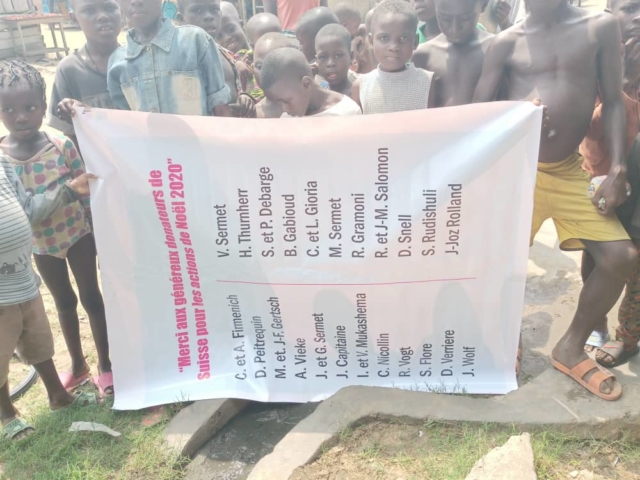 "Merci aux généreux donateurs de
Suisse pour les actions de Noël 2020"
C. et A. Firmenich
D. Peitrequin
M. et J-F. Gertsch
A. Vieke
J. et G. Sermet
J. Capitaine
I. et V. Mukashema
C. Nicollin
R. Vogt
S. Flore
D. Verrière
J. Wolf
V. Sermet
H. Thurnherr
S. et P. Debarge
B. Gabioud
C. et L. Gloria
M. Sermet
R. Gramoni
R. et J-M. Salomon
D. Snell
S. Rudishuli
J-loz Rolland